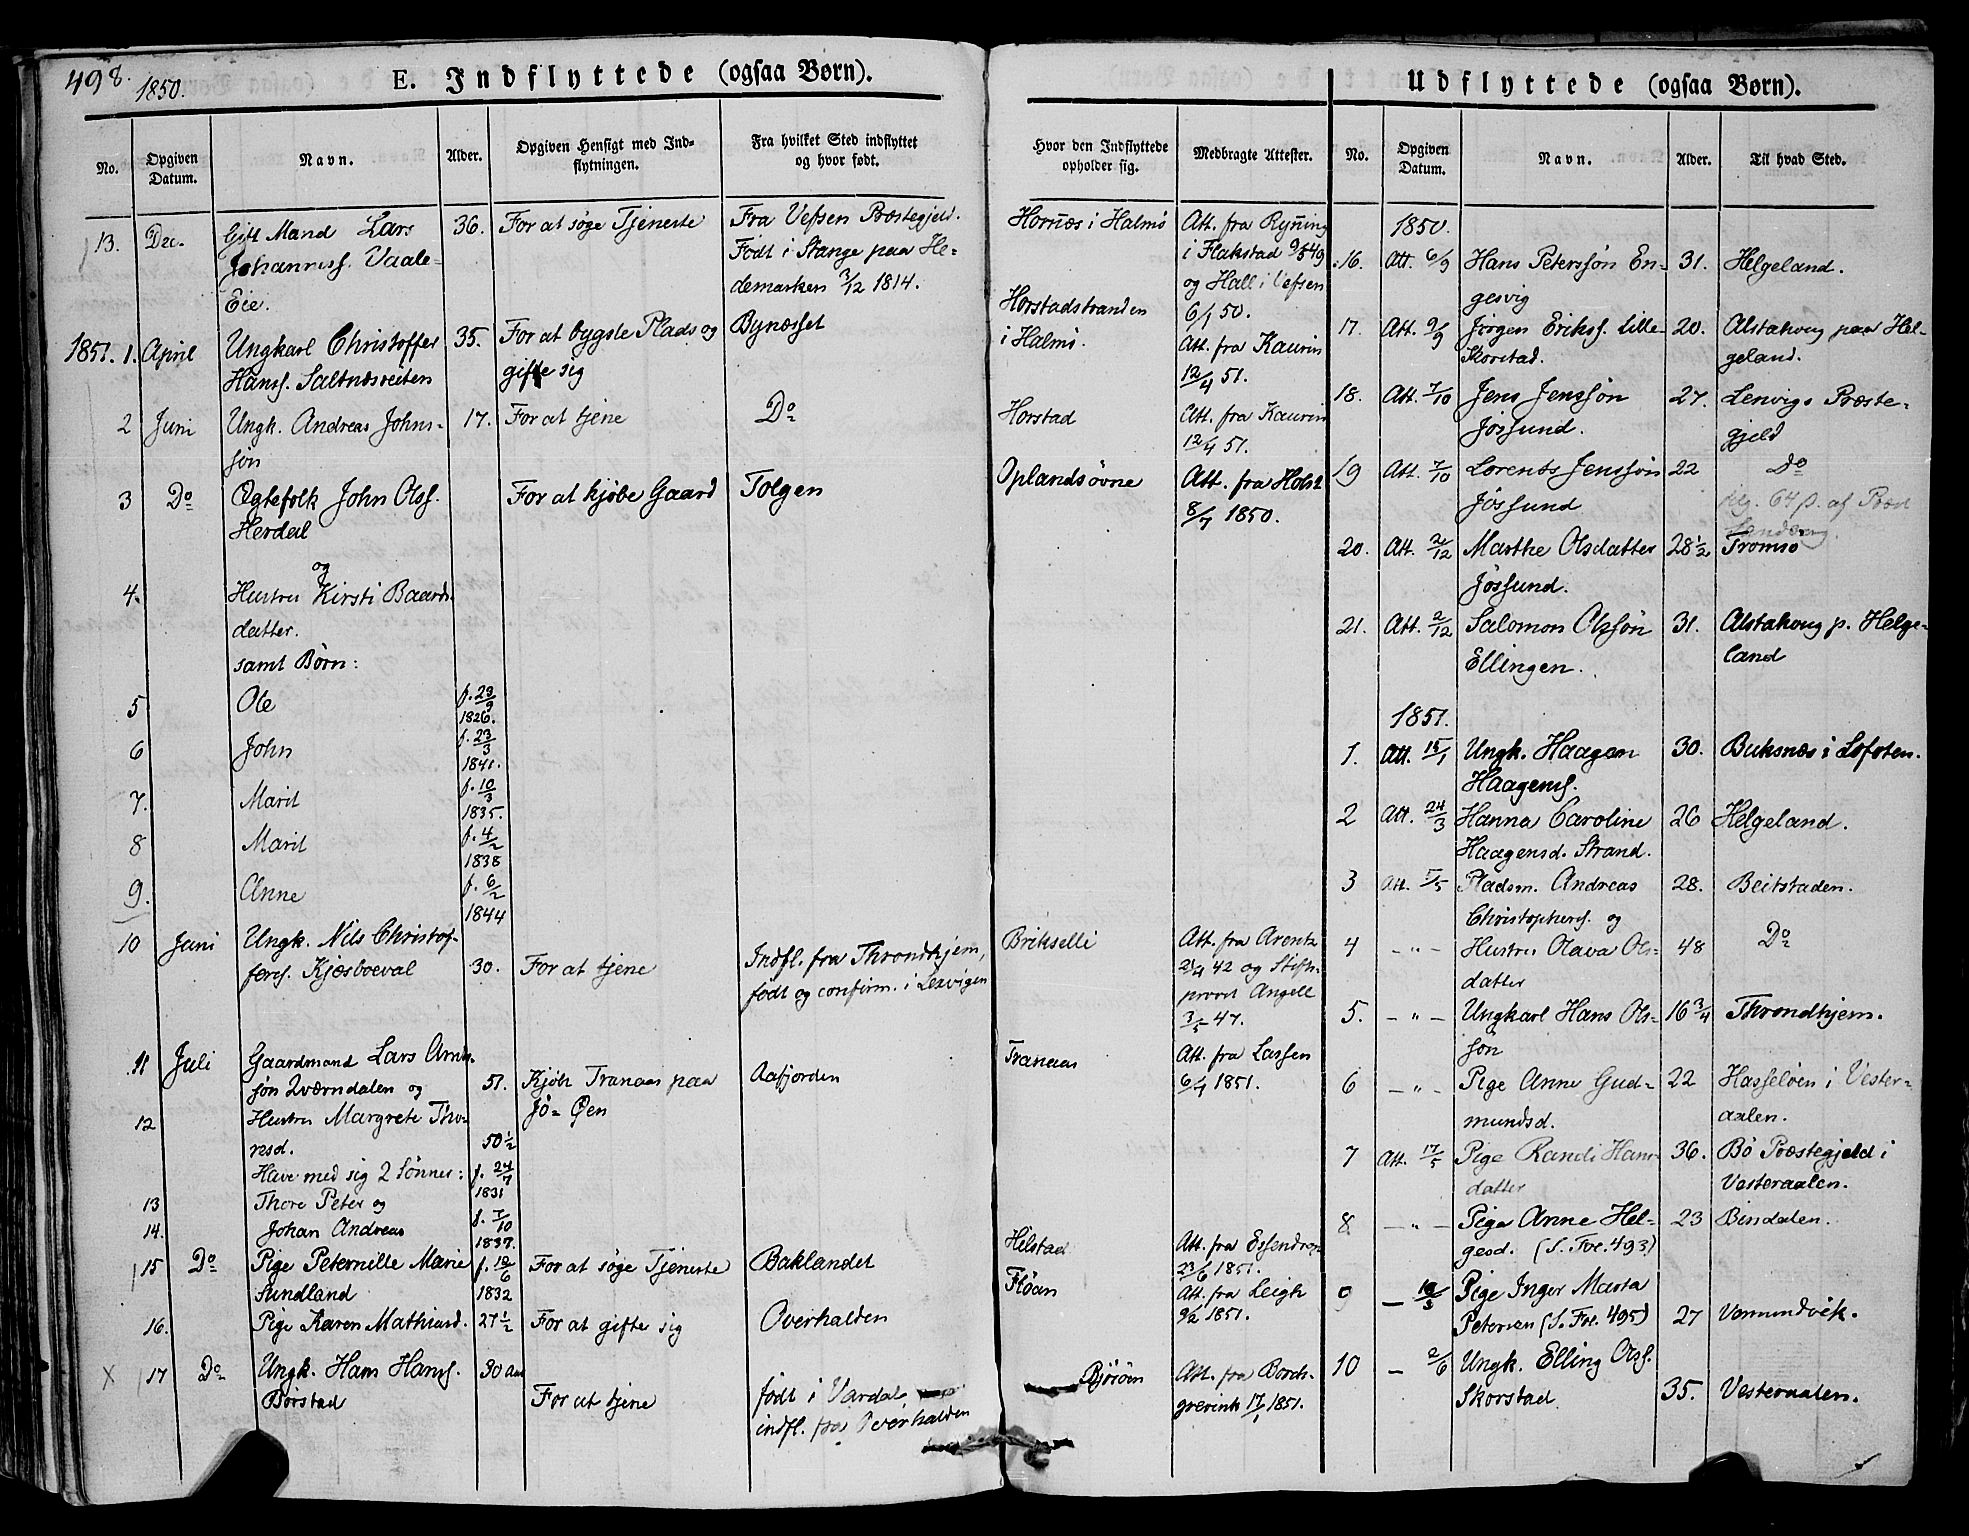 498.
1850.
E. Indflyttede (ogsaa Børn).
No.
Opgiven Datum.
Navn.
Alder.
Opgiven Hensigt med Ind-
flytningen.
Fra hvilket Sted indflyttet
og hvor født.
Hvor den Indflyttede
opholder sig.
Medbragte Attester.
13. Dec. Gift Mand Lars 36. For at søge Tjeneste Fra Vefsen Præstegjeld. Hornæs i Halmø Att. fra Ryning
Johanness. Vaale- Født i Stange paa He- i Flakstad 9/5 49
Eie. demarken 3/12 1814. og Hall i Vefsen
6/1 50.
1851. 1. April Ungkarl Christoffer 35. For at bygsle Plads og Bynæsset Horstadstranden
i Halmø. Att. fra Kaurin
Hanss. Saltnæsveiten gifte sig 12/4 51.
2 Juni Ungk. Andreas Johns- 17. For at tjene Do Horstad Att. fra Kaurin
søn 12/4 51.
3 Do Ægtefolk John Olss. For at kjøbe Gaard Tolgen Oplandsøvne Att. fra Holst
Herdal 8/7 1850.
og
4. Hustru Kirsti Baards-
datter.
samt Børn:
5 Ole f. 29/9
1826.
6 John f. 23/3
1841.
7. Marit f. 10/3
1835.
8 Marit f. 4/2
1838
9. Anne f. 6/2
1844
10 Juni Ungk. Nils Christof- Brikselli Att. fra Arentz
fers. Kjæsboeval 30. For at tjene Indfl. fra Throndhjem, 42 og Stifts-
født og confirm. i Lexvigen provst Angell
3/5 47.
11 Juli Gaardmand Lars Arnt- Tranaas Att. fra Lassen
søn Qværndalen og 51. Kjøb Tranaas paa Aafjorden 6/4 1851.
12 Hustru Margrete Tho- Jø-Øen
resd. 50 1/2
Have med sig 2 Sønner: f. 24/7
13 Thore Peter og 1831
14. Johan Andreas f. 7/10
1837.
15 Do Pige Peternille Marie f. 12/6 For at søge Tjeneste Baklandet Helstad Att. fra Essendrop
Sundland 1832 23/6 1851.
16. Pige Karen Mathiasd. 27 1/2 For at gifte sig Overhalden Fløan Att. fra Leigh
9/2 1851.
x 17 Do Ungk. Hans Hanss. 30 Aar Bjørøen Att. fra Borch-
Børstad For at tjene født i Vardal, grevink 17/1 1851.
indfl. fra Overhalden
Udflyttede (ogsaa Børn).
No.
Opgiven Datum.
Navn.
Alder.
Til hvad Sted.
1850.
16. Att. 6/9 Hans Peterssøn En- 31. Helgeland.
gesvig
17. Att. 9/9 Jørgen Erikss. Lille 20. Alstahoug paa Hel-
Skorstad. geland.
18. Att. 7/10 Jens Jenssøn 27. Lenvigs Præste-
Jøssund. gjeld
19 Att. 7/10 Lorents Jenssøn 22 Do
Jøssund
20. Att. 2/12 Marthe Olsdatter 28 1/2 Tromsø
Jøssund.
21. Att. 2/12 Salomon Olssøn 31. Alstahoug p. Helge-
Ellingen. land
1851.
1. Att. 15/1 Ungk. Haagen 30. Buksnæs i Lofoten.
Haagens.
2 Att. 24/3 Hanna Caroline 26 Helgeland.
Haagensd. Strand.
3 Att. 5/5 Pladsm. Andreas 28. Beitstaden.
Christophers. og
4 - " - Hustru Olava Ols- 48 Do
datter
5. - " - Ungkarl Hans Ols- 16 3/4 Throndhjem.
søn
6 - " - Pige Anne Gud- 22 Hasseløen i Vester-
mundsd. aalen.
7 Att. 17/5 Pige Randi Hans- 36. Bø Præstegjeld i
datter Vesteraalen.
8 - " - Pige Anne Hel- 23 Bindalen.
gesd. (S. Fol. 493)
9 - Pige Inger Marta
Petersen (S. Fol. 495) 27 Vemundvik.
10 - 2/6 Ungk. Elling Olss.
Skorstad 35. Vesteraalen.